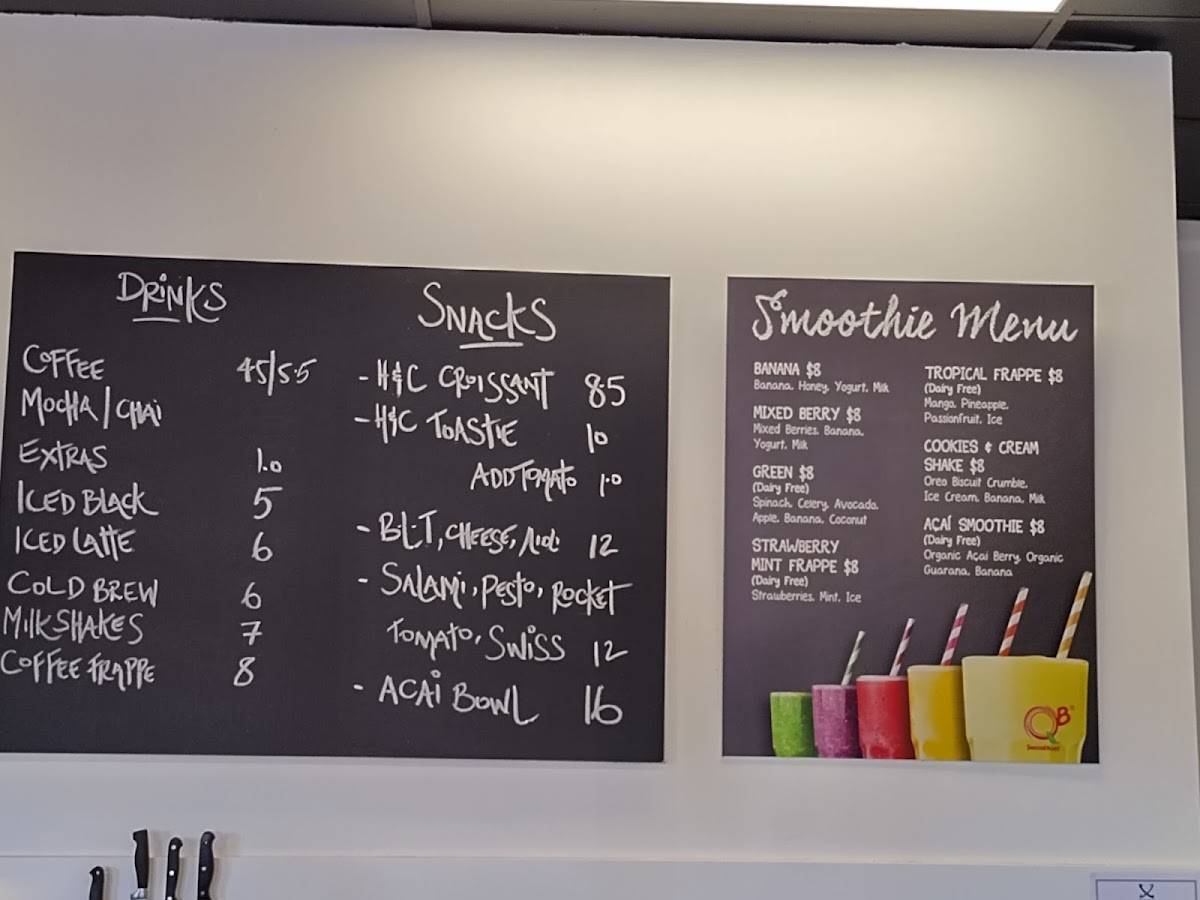 DRINKS
COFFEE 45/5.5
MOCHA/CHAI
EXTRAS 1.0
ICED BLACK 5
ICED LATTE 6
COLD BREW 6
MILKSHAKES 7
COFFEE FRAPPE 8
SNACKS
- H&C CROISSANT 85
- H&C TOASTIE 10
ADD TOMATO 1.0
- B.L.T, CHEESE, AIOLI 12
- SALAMI, PESTO, ROCKET
TOMATO, SWISS 12
- ACAI BOWL 16
Smoothie Menu
BANANA $8
Banana, Honey, Yogurt, Milk
MIXED BERRY $8
Mixed Berries, Banana,
Yogurt, Milk
GREEN $8
(Dairy Free)
Spinach, Celery, Avocado,
Apple, Banana, Coconut
STRAWBERRY
MINT FRAPPE $8
(Dairy Free)
Strawberries, Mint, Ice
TROPICAL FRAPPE $8
(Dairy Free)
Mango, Pineapple,
Passionfruit, Ice
COOKIES & CREAM
SHAKE $8
Oreo Biscuit Crumble,
Ice Cream, Banana, Milk
AÇAÍ SMOOTHIE $8
(Dairy Free)
Organic Açaí Berry, Organic
Guarana, Banana
QB